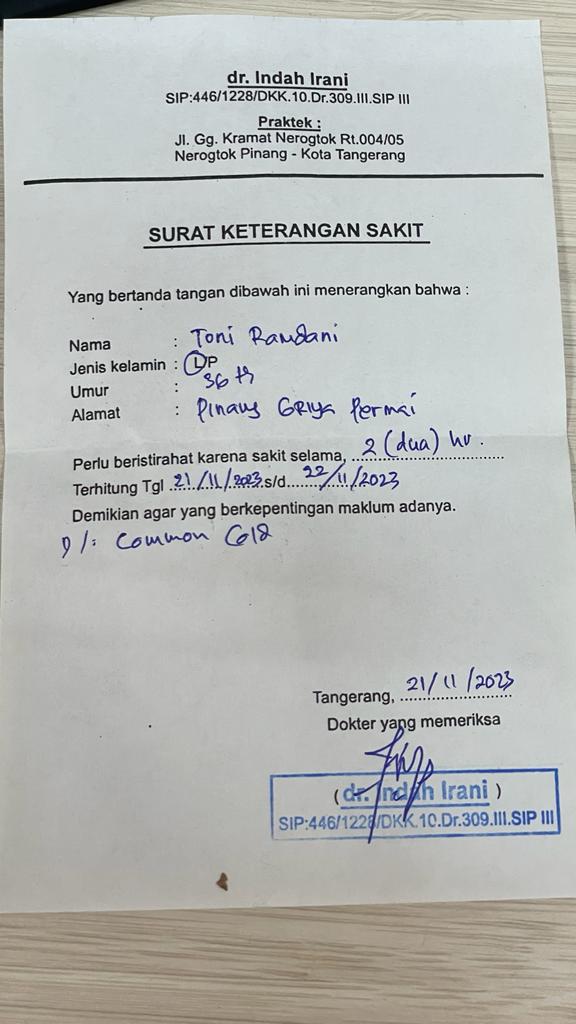 dr. Indah Irani
SIP:446/1228/DKK.10.Dr.309.III.SIP III
Praktek :
Jl. Gg. Kramat Nerogtok Rt.004/05
Nerogtok Pinang - Kota Tangerang
SURAT KETERANGAN SAKIT
Yang bertanda tangan dibawah ini menerangkan bahwa :
Nama : Toni Ramdani
Jenis kelamin : L/P
Umur : 36 th
Alamat : Pinang Griya Permai
Perlu beristirahat karena sakit selama, 2 (dua) hr.
Terhitung Tgl 21/11/2023 s/d 22/11/2023
Demikian agar yang berkepentingan maklum adanya.
D/: Common Cold
Tangerang, 21/11/2023
Dokter yang memeriksa
(dr. Indah Irani)
SIP:446/1228/DKK.10.Dr.309.III.SIP III